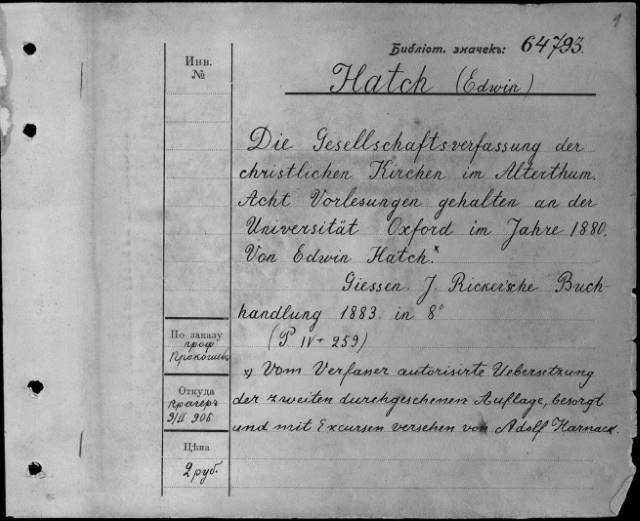 1
Библіот. значекъ: 64793.
Инв.
№
Hatch (Edwin)
Die Gesellschaftsverfassung der
christlichen Kirchen im Alterthum.
Acht Vorlesungen gehalten an der
Universität Oxford im Jahre 1880.
Von Edwin Hatch.x
Giessen. J. Ricker'sche Buch-
handlung 1883 in 8°
(P IV + 259)
x) Vom Verfaner autorisirte Uebersetzung
der zweiten durchgeschenen Auflage, besorgt
und mit Excursen versehen von Adolf Harnack.
По заказу
проф
Откуда
Прагеръ
9/II 906
Цѣна
2 руб.